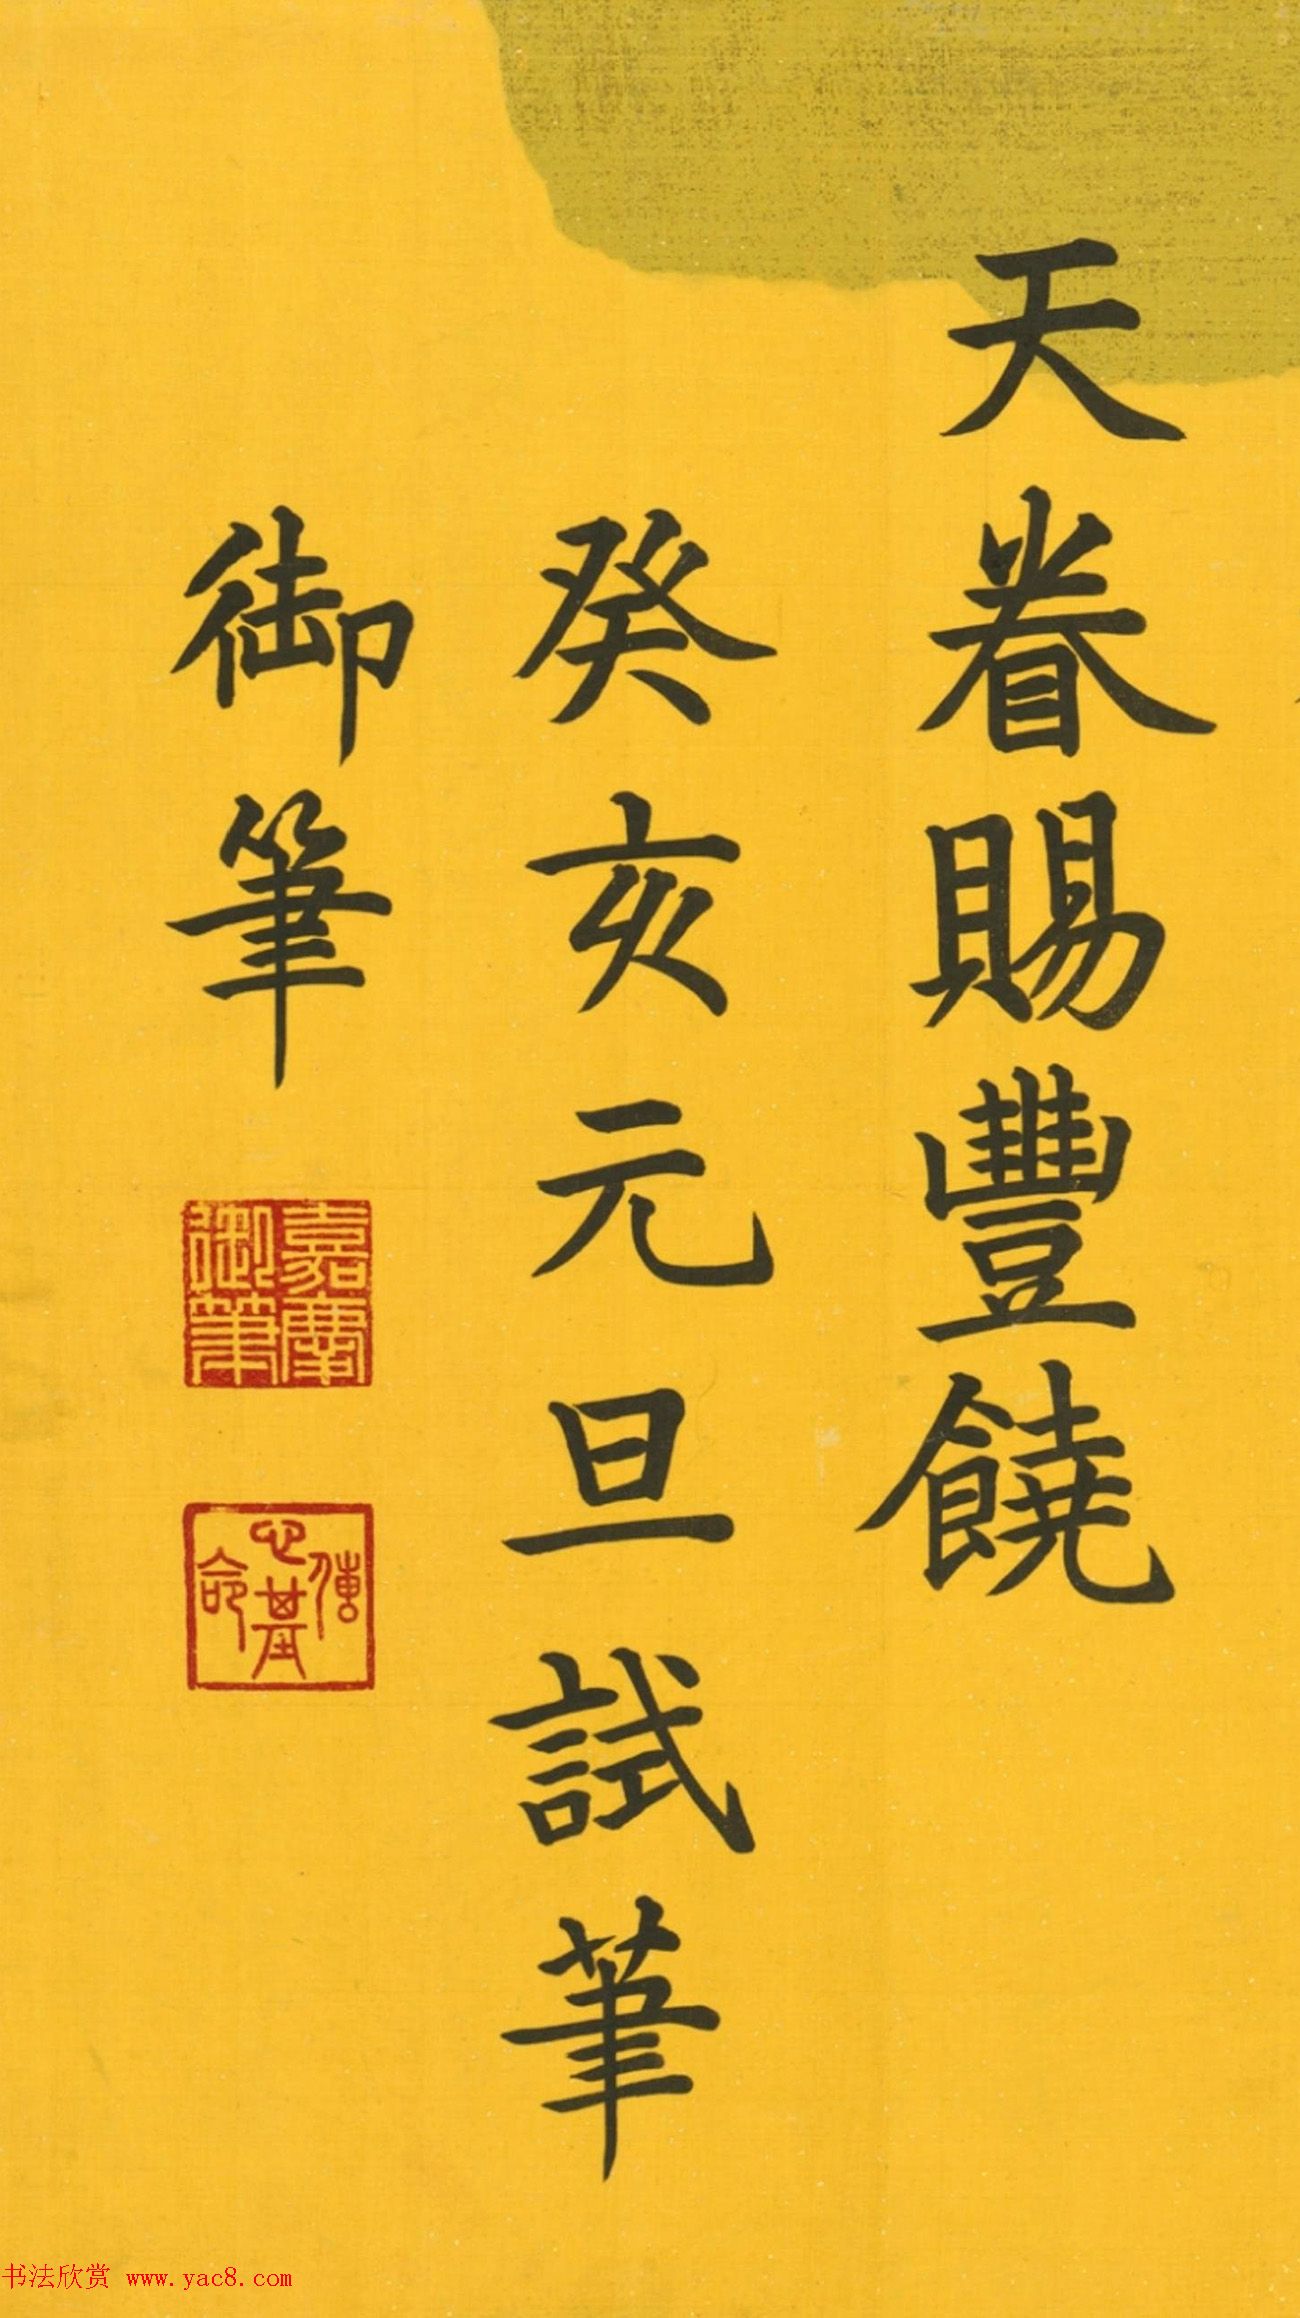 天眷賜豐饒
癸亥元旦試筆
御筆
嘉慶
御筆
傳
心基
命
书法欣赏 www.yac8.com